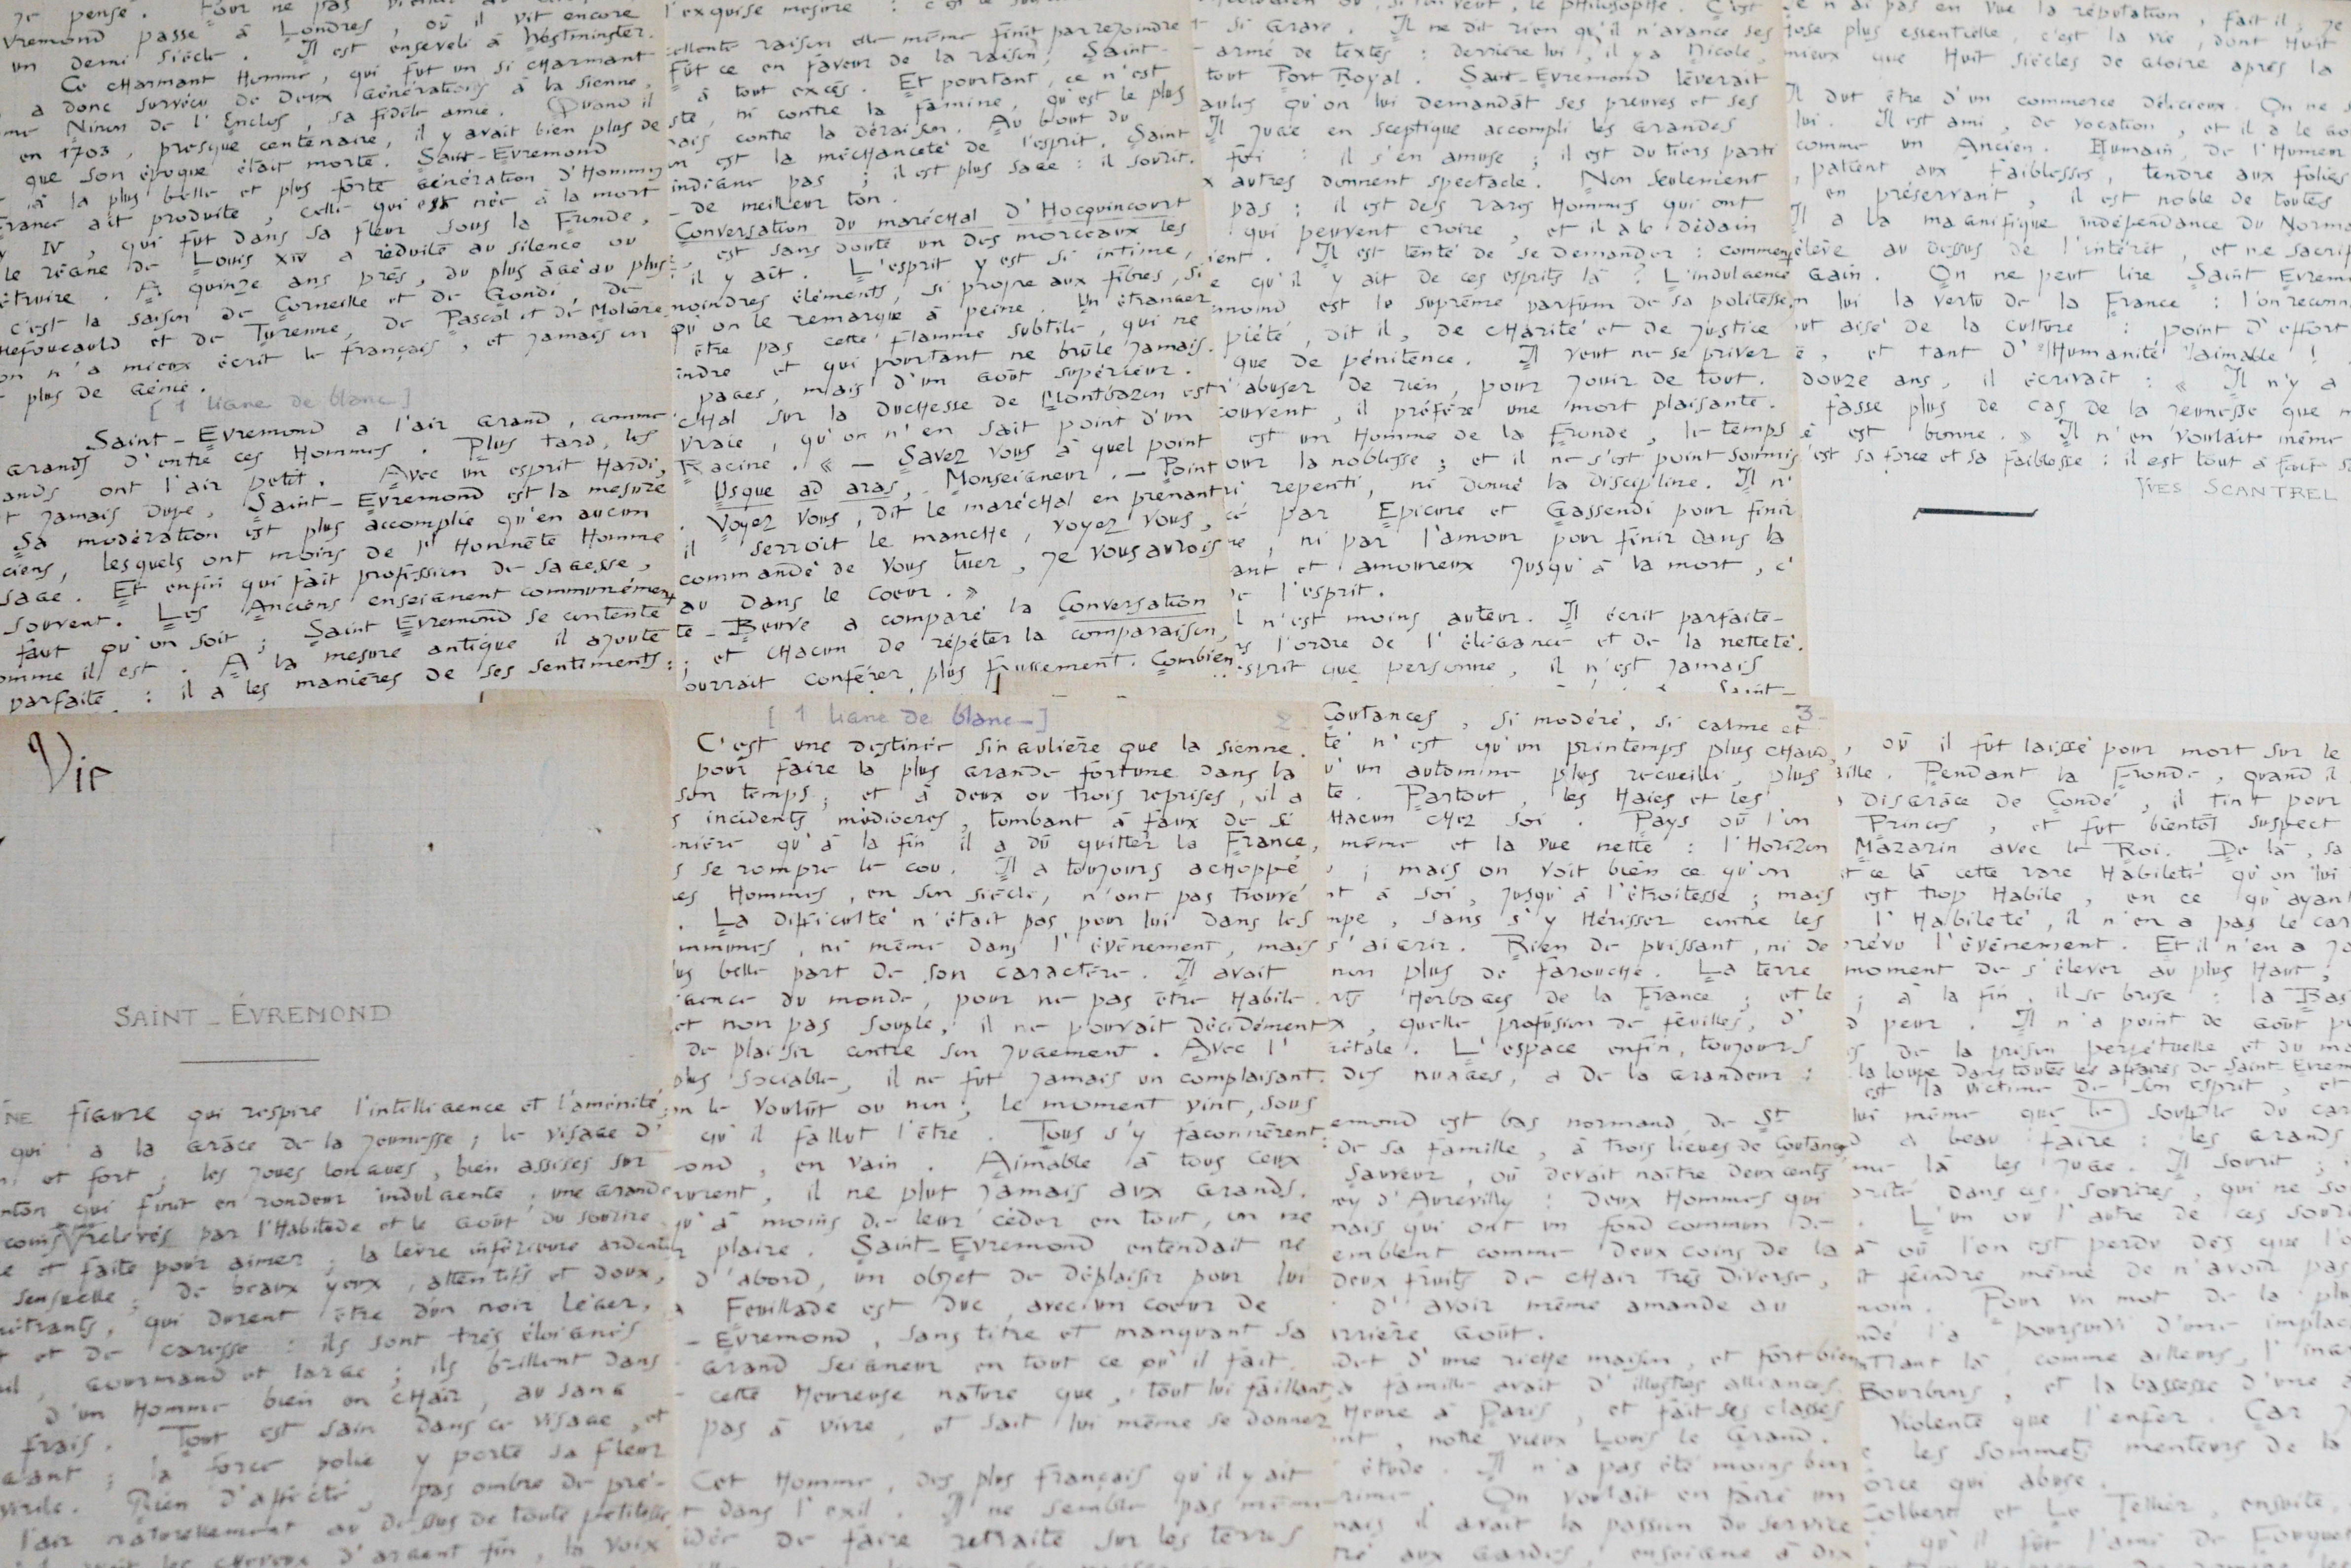 pensé. Pour ne pas
vremond passe à Londres, où il vit encore
un demi siècle. Il est enseveli à Westminster.
Ce charmant Homme, qui fut un si charmant
a donc survécu de deux générations à la sienne,
Ninon de l'Enclos, sa fidèle amie. Quand il
en 1703, presque centenaire, il y avait bien plus de
que son époque était morte. Saint-Evremond
à la plus belle et plus forte génération d'Hommes
rance ait produite, celle qui est née à la mort
IV, qui fut dans sa fleur sous la Fronde,
le règne de Louis XIV a réduite au silence ou
étruire. A quinze ans près, du plus âgé au plus
c'est la saison de Corneille et de Gondi, de
hefoucauld et de Turenne, de Pascal et de Molière
on n'a mieux écrit le français, et jamais on
plus de génie.
[1 ligne de blanc]
Saint-Evremond a l'air grand, comme
grands d'entre ces Hommes. Plus tard, les
ands ont l'air petit. Avec un esprit Hardi,
t jamais dupe, Saint-Evremond est la mesure
Sa modération est plus accomplie qu'en aucun
ciens, lesquels ont moins de l'Honnête Homme
sage. Et enfin qui fait profession de sagesse,
souvent. Les Anciens enseignent communément
faut qu'on soit; Saint Evremond se contente
omme il est. A la mesure antique il ajoute
parfaite : il a les manières de ses sentiments :
l'exquise mesure :
cellente raison elle même finit par rejoindre
Fût ce en faveur de la raison, Saint-
à tout excès. Et pourtant, ce n'est
ste, ni contre la famine, qu'est le plus
mais contre la déraison. Au bout du
est la méchanceté de l'esprit. Saint
indigne pas ; il est plus sage : il sourit.
de meilleur ton.
Conversation du maréchal d'Hocquincourt
est sans doute un des morceaux les
il y ait. L'esprit y est si intime,
moindres éléments, si propre aux fibres, si
qu'on le remarque à peine. Un étranger
être pas cette flamme subtile, qui ne
indre et qui pourtant ne brûle jamais.
pages, mais d'un goût supérieur.
chal sur la duchesse de Montbazon est
vraie, qu'on n'en sait point d'un
Racine. « — Savez vous à quel point
Usque ad aras, Monseigneur. — Point
Voyez vous, dit le maréchal en prenant
il serroit le manche, voyez vous,
commandé de vous tuer, je vous aurois
au dans le coeur. »
te-Beuve a comparé la Conversation
; et chacun de répéter la comparaison,
ourrait conférer plus faussement. Combien
si grave. Il ne dit rien qu'il n'avance ses
armé de textes : derrière lui, il y a Nicole,
tout Port Royal. Saint-Evremond lèverait
aules qu'on lui demandât ses preuves et ses
Il juge en sceptique accompli les grandes
foi : il s'en amuse ; il est du tiers parti
x autres donnent spectacle. Non seulement
pas : il est des rares Hommes qui ont
qui peuvent croire, et il a le dédain
ient. Il est tenté de se demander : comment
qu'il y ait de ces esprits là ? L'indulgence
mond est le suprême parfum de sa politesse.
piété, dit il, de charité et de justice
que de pénitence. Il veut ne se priver
abuser de rien, pour jouir de tout.
couvent, il préfère une mort plaisante.
est un Homme de la Fronde, le temps
our la noblesse ; et il ne s'est point soumis
repenti, ni donné la discipline. Il n'
par Epicure et Gassendi pour finir
re, ni par l'amour pour finir dans la
ant et amoureux jusqu'à la mort, c'
l'esprit.
n'est moins auteur. Il écrit parfaite-
l'ordre de l'élégance et de la netteté.
sprit que personne, il n'est jamais
Saint-
Je n'ai pas en vue la réputation, fait il ; je
hose plus essentielle, c'est la vie, dont Huit
mieux que Huit siècles de gloire après la
Il dut être d'un commerce délicieux. On ne
lui. Il est ami, de vocation, et il a le go
comme un Ancien. Humain, de l'Humeur
, patient aux faiblesses, tendre aux folies
en préservant, il est noble de toutes
Il a la magnifique indépendance du Norma
élève au dessus de l'intérêt, et ne sacrif
gain. On ne peut lire Saint Evrem
lui la vertu de la France : l'on reconn
ut aisé de la culture : point d'effort
, et tant d'Humanité aimable !
douze ans, il écrivait : « Il n'y a
fasse plus de cas de la jeunesse que
est bonne. » Il n'en voulait même
'est sa force et sa faiblesse : il est tout à fait
YVES SCANTREL
Vie
SAINT-ÉVREMOND
NE figure qui respire l'intelligence et l'aménité,
qui a la grâce de la jeunesse ; le visage d'
et fort ; les joues longues, bien assises sur
nton qui finit en rondeur indulgente ; une grande
coins relevés par l'Habitude et le goût du sourire
et faite pour aimer ; la lèvre inférieure ardente
sensuelle ; de beaux yeux, attentifs et doux,
nétrants, qui durent être d'un noir léger,
et de caresse : ils sont très éloignés
gourmand et large ; ils brillent dans
d'un Homme bien en chair, au sang
frais. Tout est sain dans ce visage, et
gant ; la force polie y porte sa fleur
virile. Rien d'affecté, pas ombre de pré-
l'air naturellement au dessus de toute petitesse
les cheveux d'argent fin, la voix
[1 ligne de blanc-]
2
C'est une destinée singulière que la sienne.
pour faire la plus grande fortune dans la
son temps ; et à deux ou trois reprises, il a
incidents médiocres, tombant à faux de si
nière qu'à la fin il a dû quitter la France,
s se rompre le cou. Il a toujours achoppé
es Hommes, en son siècle, n'ont pas trouvé
. La difficulté n'était pas pour lui dans les
mmunes, ni même dans l'événement, mais
us belle part de son caractère. Il avait
igence du monde, pour ne pas être Habile.
et non pas souple, il ne pouvait décidément
de plaisir contre son jugement. Avec l'
plus sociable, il ne fut jamais un complaisant.
on le voulût ou non ; le moment vint, sous
qu'il fallut l'être. Tous s'y façonnèrent :
ond, en vain. Aimable à tous ceux
urent, il ne plut jamais aux grands.
qu'à moins de leur céder en tout, on ne
plaire. Saint-Evremond entendait ne
d'abord, un objet de déplaisir pour lui
Feuillade est duc, avec un coeur de
-Evremond, sans titre et manquant sa
grand seigneur en tout ce qu'il fait.
cette Heureuse nature que, tout lui faillant,
pas à vivre, et sait lui même se donner
Cet Homme, des plus français qu'il y ait
t dans l'exil. Il ne semble pas même
idée de faire retraite sur les terres
3-
Coutances, si modéré, si calme et
té n'est qu'un printemps plus chaud,
u'un automne plus recueilli, plus
te. Partout, les Haies et les
chacun chez soi. Pays où l'on
même et la vue nette : l'Horizon
; mais on voit bien ce qu'on
nt à soi, jusqu'à l'étroitesse ; mais
mpe, sans s'y Hérisser contre les
s'aigrir. Rien de puissant, ni de
non plus de farouche. La terre
rts Herbages de la France ; et le
x, quelle profusion de feuilles, d'
étale. L'espace enfin, toujours
des nuages, a de la grandeur :
emond est bas normand, de St
de sa famille, à trois lieues de Coutances
Sauveur, où devait naître deux cents
ey d'Aurevilly : deux Hommes qui
mais qui ont un fond commun de
emblent comme deux coins de la
deux fruits de chair très diverse,
d'avoir même amande au
rrière goût.
det d'une riche maison, et fort bien
famille avait d'illustres alliances.
Heure à Paris, et fait ses classes
nt, notre vieux Louis le Grand.
étude. Il n'a pas été moins bon
rime. On voulait en faire un
mais il avait la passion du service
aux gardes, enseigne à dix
, où il fut laissé pour mort sur le
aille. Pendant la Fronde, quand il
disgrâce de Condé, il tint pour
Princes, et fut bientôt suspect
Mazarin avec le Roi. De là, sa
t ce là cette rare Habileté qu'on lui
est trop Habile, en ce qu'ayant
l'Habileté, il n'en a pas le car
révu l'événement. Et il n'en a ja
moment de s'élever au plus Haut,
; à la fin, il se brise : la Bas
peur. Il n'a point de goût p
de la prison perpétuelle et du ma
la loupe dans toutes les affaires de Saint-Evrem
est la victime de son esprit, et
lui même que le souffle du car
a beau faire : les grands
là les juge. Il sourit ;
dans ces sourires, qui ne so
L'un ou l'autre de ces sour
à où l'on est perdu dès que l'o
t feindre même de n'avoir pas
moin. Pour un mot de la plu
ndé l'a poursuivi d'une implac
ntrant là, comme ailleurs, l'ing
Bourbons, et la bassesse d'une
violente que l'enfer. Car
les sommets menteurs de la
orce qui abuse.
Colbert et Le Tellier, ensuite,
qu'il fût l'ami de Fouquet